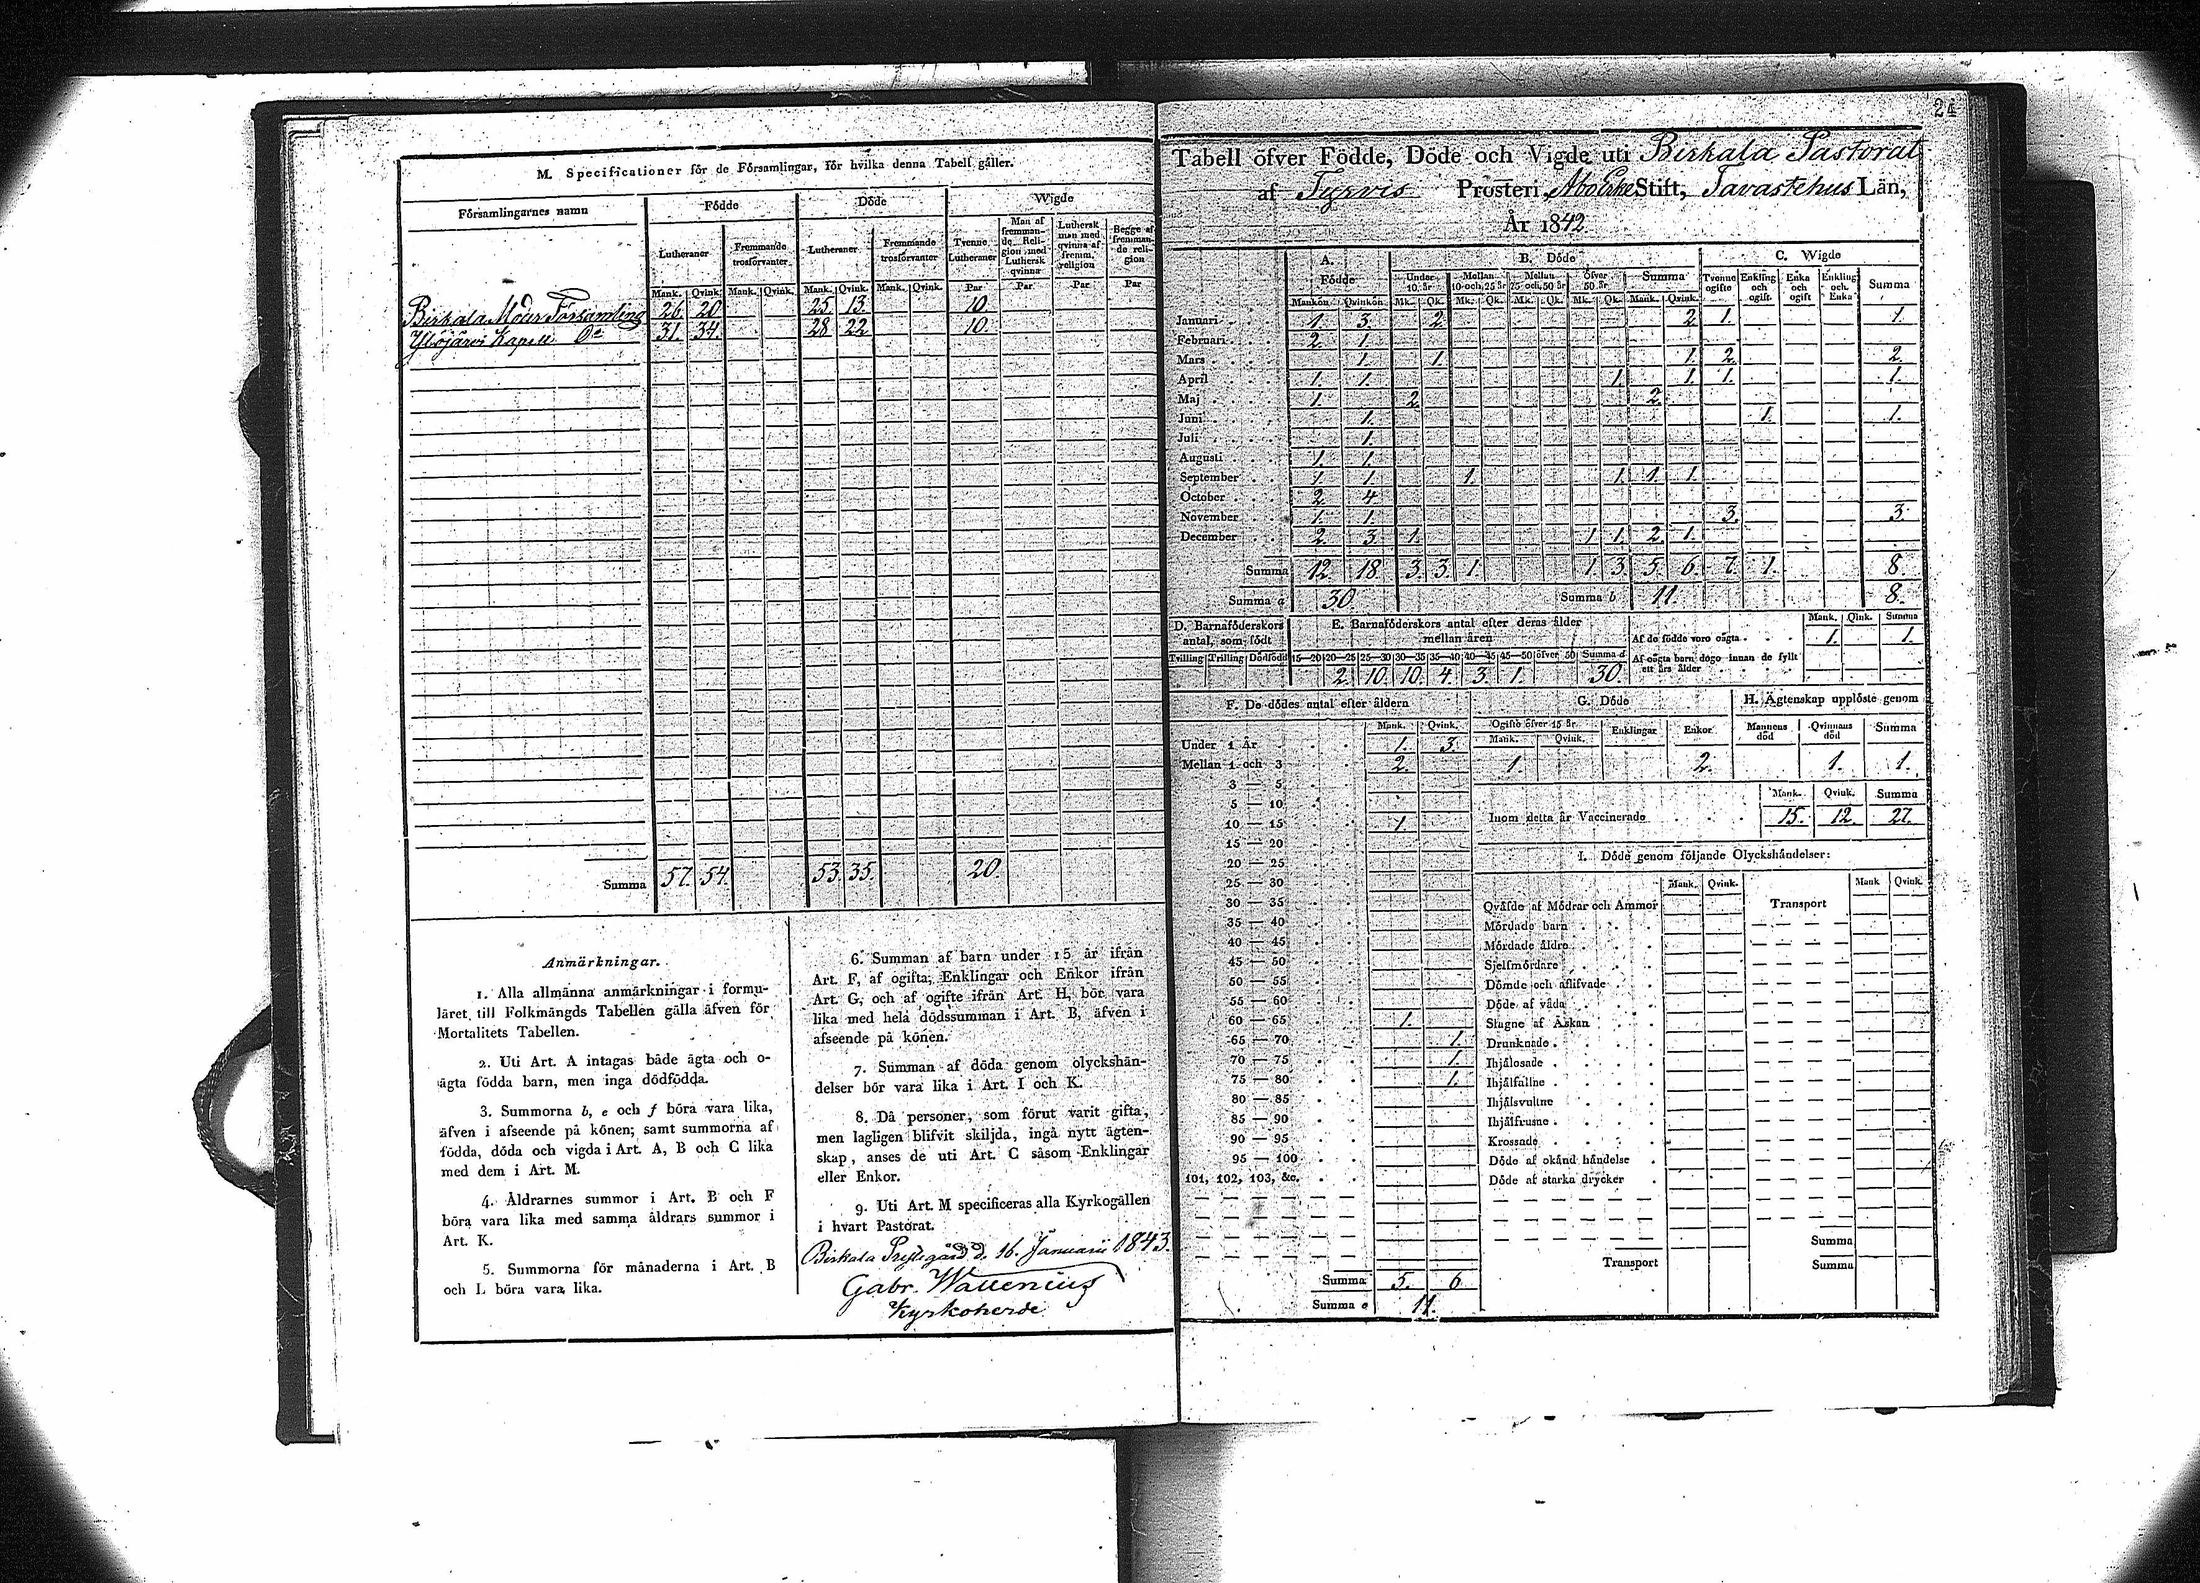 M. Specificationer för de Församlingar, för hvilka denna Tabell gäller.
Församlingarnes namn | Födde | Döde | Wigde
Lutheraner | Fremmande trosförvanter | Lutheraner | Fremmande trosförvanter | Tvenne Lutheraner | Man af fremmande Religion med Luthersk qvinna | Luthersk man med qvinna af fremm. religion | Begge af fremmande religion
Mank. | Qvink. | Mank. | Qvink. | Mank. | Qvink. | Mank. | Qvink. | Par | Par | Par | Par
Birkala Moder Församling 26. 20 25. 13. 10.
Ylöjärvi Kapell Do 31. 34. 28 22 10.
Summa 57. 54. 53. 35. 20.
Anmärkningar.
1. Alla allmänna anmärkningar i formu-
läret till Folkmängds Tabellen gälla äfven för
Mortalitets Tabellen.
2. Uti Art. A intagas både ägta och o-
ägta födda barn, men inga dödfödda.
3. Summorna b, e och f böra vara lika,
äfven i afseende på könen; samt summorna af
födda, döda och vigda i Art. A, B och C lika
med dem i Art. M.
4. Åldrarnes summor i Art. B och F
böra vara lika med samma åldrars summor i
Art. K.
5. Summorna för månaderna i Art. B
och L böra vara lika.
6. Summan af barn under 15 år ifrån
Art. F, af ogifta, Enklingar och Enkor ifrån
Art. G, och af ogifte ifrån Art. H, bör vara
lika med hela dödssumman i Art. B, äfven i
afseende på könen.
7. Summan af döda genom olyckshän-
delser bör vara lika i Art. I och K.
8. Då personer, som förut varit gifta,
men lagligen blifvit skiljda, ingå nytt ägten-
skap, anses de uti Art. C såsom Enklingar
eller Enkor.
9. Uti Art. M specificeras alla Kyrkogällen
i hvart Pastorat.
Birkala Prestegård d. 16. Januarii 1843.
Gabr. Wallenius
Kyrkoherde
24
Tabell öfver Födde, Döde och Vigde uti Birkala Pastorat
af Tyrvis Prosteri Åbo Erke Stift, Tavastehus Län,
År 1842
A. Födde | B. Döde | C. Wigde
Under 10 år | Mellan 10 och 25 år | Mellan 25 och 50 år | Öfver 50 år | Summa | Tvenne ogifte | Enkling och ogift | Enka och ogift | Enkling och Enka | Summa
Mankön | Qvinkön | Mk. | Qk. | Mk. | Qk. | Mk. | Qk. | Mk. | Qk. | Mank. | Qvink.
Januari 1. 3. 2. 2. 1. 1.
Februari 2. 1.
Mars 1. 1. 1. 2. 2.
April 1. 1. 1. 1. 1. 1.
Maj 1. 2. 2.
Juni 1. 1. 1.
Juli 1.
Augusti 1. 1.
September 1. 1. 1. 1. 1. 1.
October 2. 4.
November 1. 1. 3. 3.
December 2. 3. 1. 1. 1. 2. 1.
Summa 12. 18. 3. 3. 1. 1. 3. 5. 6. 7. 1. 8.
Summa a 30. Summa b 11. 8.
D. Barnaföderskors antal, som födt
Tvilling | Trilling | Dödfödt
E. Barnaföderskors antal efter deras ålder mellan åren
15—20 | 20—25 | 25—30 | 30—35 | 35—40 | 40—45 | 45—50 | öfver 50 | Summa d
2. 10. 10. 4. 3. 1. 30.
Mank. | Qink. | Summa
Af de födde voro oägta 1. 1.
Af oägta barn dögo innan de fyllt ett års ålder
F. De dödes antal efter åldern
Mank. | Qvink.
Under 1 År 1. 3.
Mellan 1 och 3 2.
3 — 5
5 — 10
10 — 15 1.
15 — 20
20 — 25
25 — 30
30 — 35
35 — 40
40 — 45
45 — 50
50 — 55
55 — 60
60 — 65 1.
65 — 70 1.
70 — 75 1.
75 — 80 1.
80 — 85
85 — 90
90 — 95
95 — 100
101, 102, 103, &c.
Summa 5. 6
Summa e 11.
G. Döde
Ogifte öfver 15 år | Enklingar | Enkor
Mank. | Qvink.
1. 2.
H. Ägtenskap upplöste genom
Mannens död | Qvinnans död | Summa
1. 1.
Mank. | Qvink. | Summa
Inom detta år Vaccinerade 15. 12. 27.
I. Döde genom följande Olyckshändelser:
Mank. | Qvink. | Transport | Mank | Qvink.
Qväfde af Mödrar och Ammor
Mördade barn
Mördade äldre
Sjelfmördare
Dömde och aflifvade
Döde af våda
Slagne af Åskan
Drunknade
Ihjälosade
Ihjälfallne
Ihjälsvultne
Ihjälfrusne
Krossade
Döde af okänd händelse
Döde af starka drycker
Summa
Transport Summa